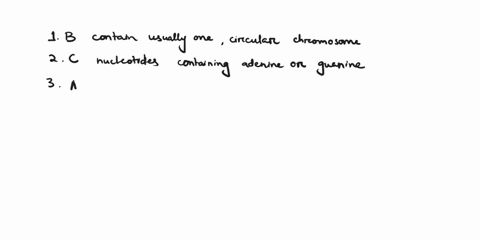 1. B contain usually one, circular chromosome
2. C nucleotides containing adenine or guenine
3. A